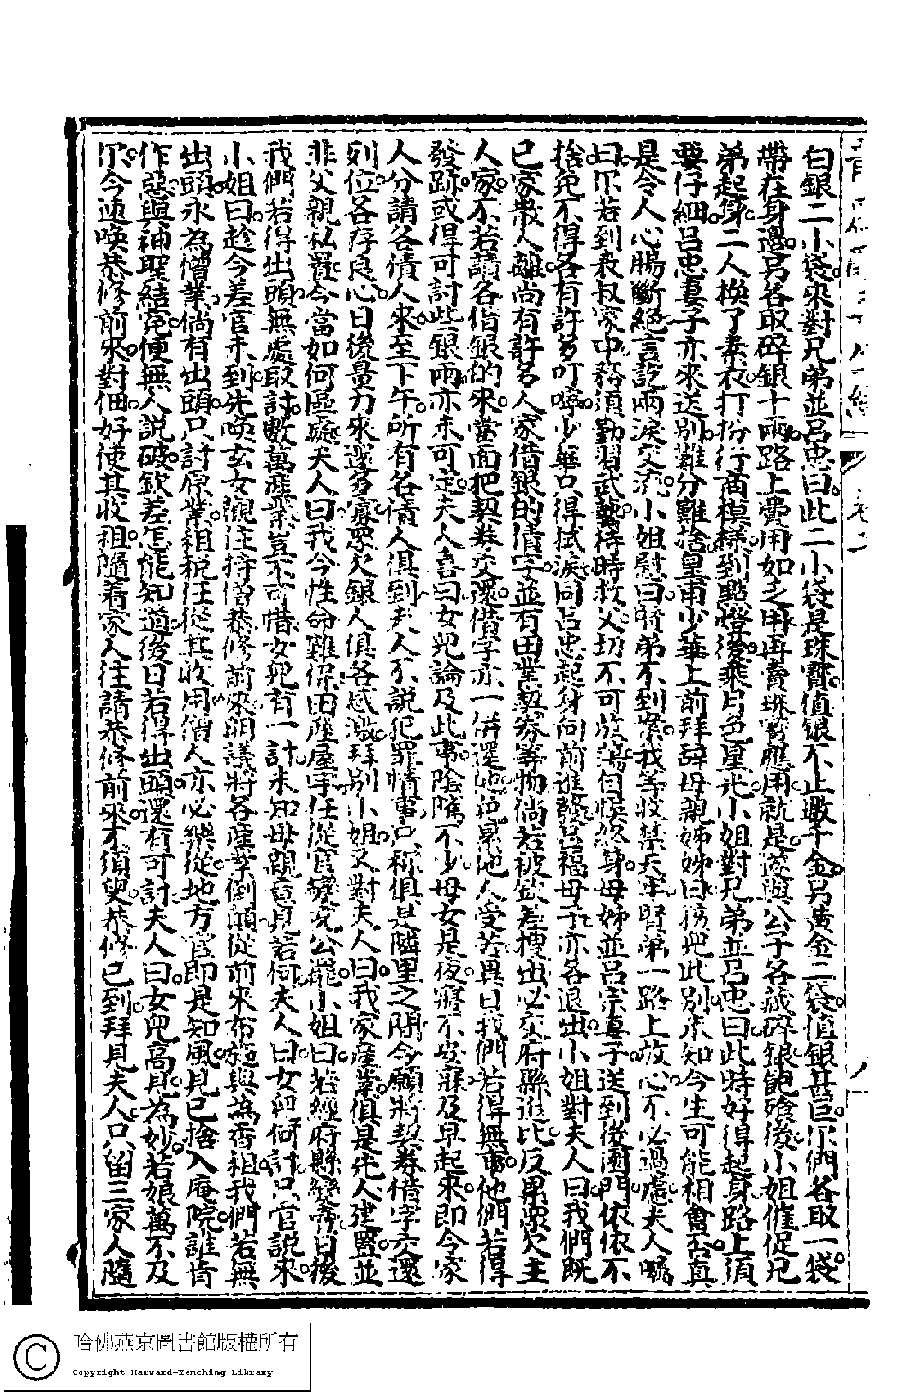 白銀二小袋來對兄弟並呂忠曰此二小袋是珠寶值銀不止數千金另黃金二袋值銀甚巨你們各取一袋
帶在身邊另各取碎銀十兩路上費用如乏用再賣珠寶應用就是遂與公子各藏碎銀飽飧後小姐催促兄
弟起身二人換了素衣打扮行商模樣到點燈後乘月色星光小姐對兄弟並呂忠曰此時好得起身路上須
要仔細呂忠妻子亦來送別難分難捨皇甫少華上前拜辭母親姊姊曰孩兒此別未知今生可能相會否真
是令人心腸斷絕言訖兩淚交流小姐慰曰時弟不到案我等收禁天牢賢弟一路上放心不必過慮夫人囑
曰你若到表叔家中務須勤習武藝待時救父切不可放蕩自悞終身母姊並呂忠妻子送到後園門依依不
捨免不得各有許多叮嚀少華只得拭淚同呂忠起身向前進發呂福母子亦各退出小姐對夫人曰我們既
已家眾人離尚有許多人家借銀的債字並有田業契券等物倘若被欽差搜出必交府縣追比反累眾欠主
人家不若請各借銀的來當面把契券交還借字亦一併還他免累他人受苦異日我們若得無事他們若得
發跡或得可討些銀兩亦未可定夫人喜曰女兒論及此事陰隲不少母女是夜寤不安寐及早起來即令家
人分請各債人來至下午所有各債人俱到夫人不說犯罪情事只稱俱是隣里之間今願將契券借字交還
列位各存良心日後量力來還多寡眾欠銀人俱各感激拜別小姐又對夫人曰我家產業俱是先人建置並
非父親私置今當如何區處夫人曰我今性命難保田產屋宇任從官變充公罷小姐曰若經府縣變帝日後
我們若得出頭無處取討數萬產業豈不可惜女兒有一計未知母親意見若何夫人曰女兒何計只管說來
小姐曰趁今差官未到先喚玄女觀住持僧恭修前來明議將各產業倒顛從前來布施與為香租我們若無
出頭永為僧業倘有出頭只討原業租稅任從其收用僧人亦必樂從地方官即是知風見已捨入庵院誰肯
作惡與神聖結冤便無人說破欽差怎能知道後日若得出頭還有可討夫人曰女兒高見為妙若娘萬不及
你今速喚恭修前來對佃好使其收租隨着家人往請恭修前來不須臾恭修已到拜見夫人只留三家人隨
哈佛燕京圖書館版權所有
Copyright Harvard-Yenching Library